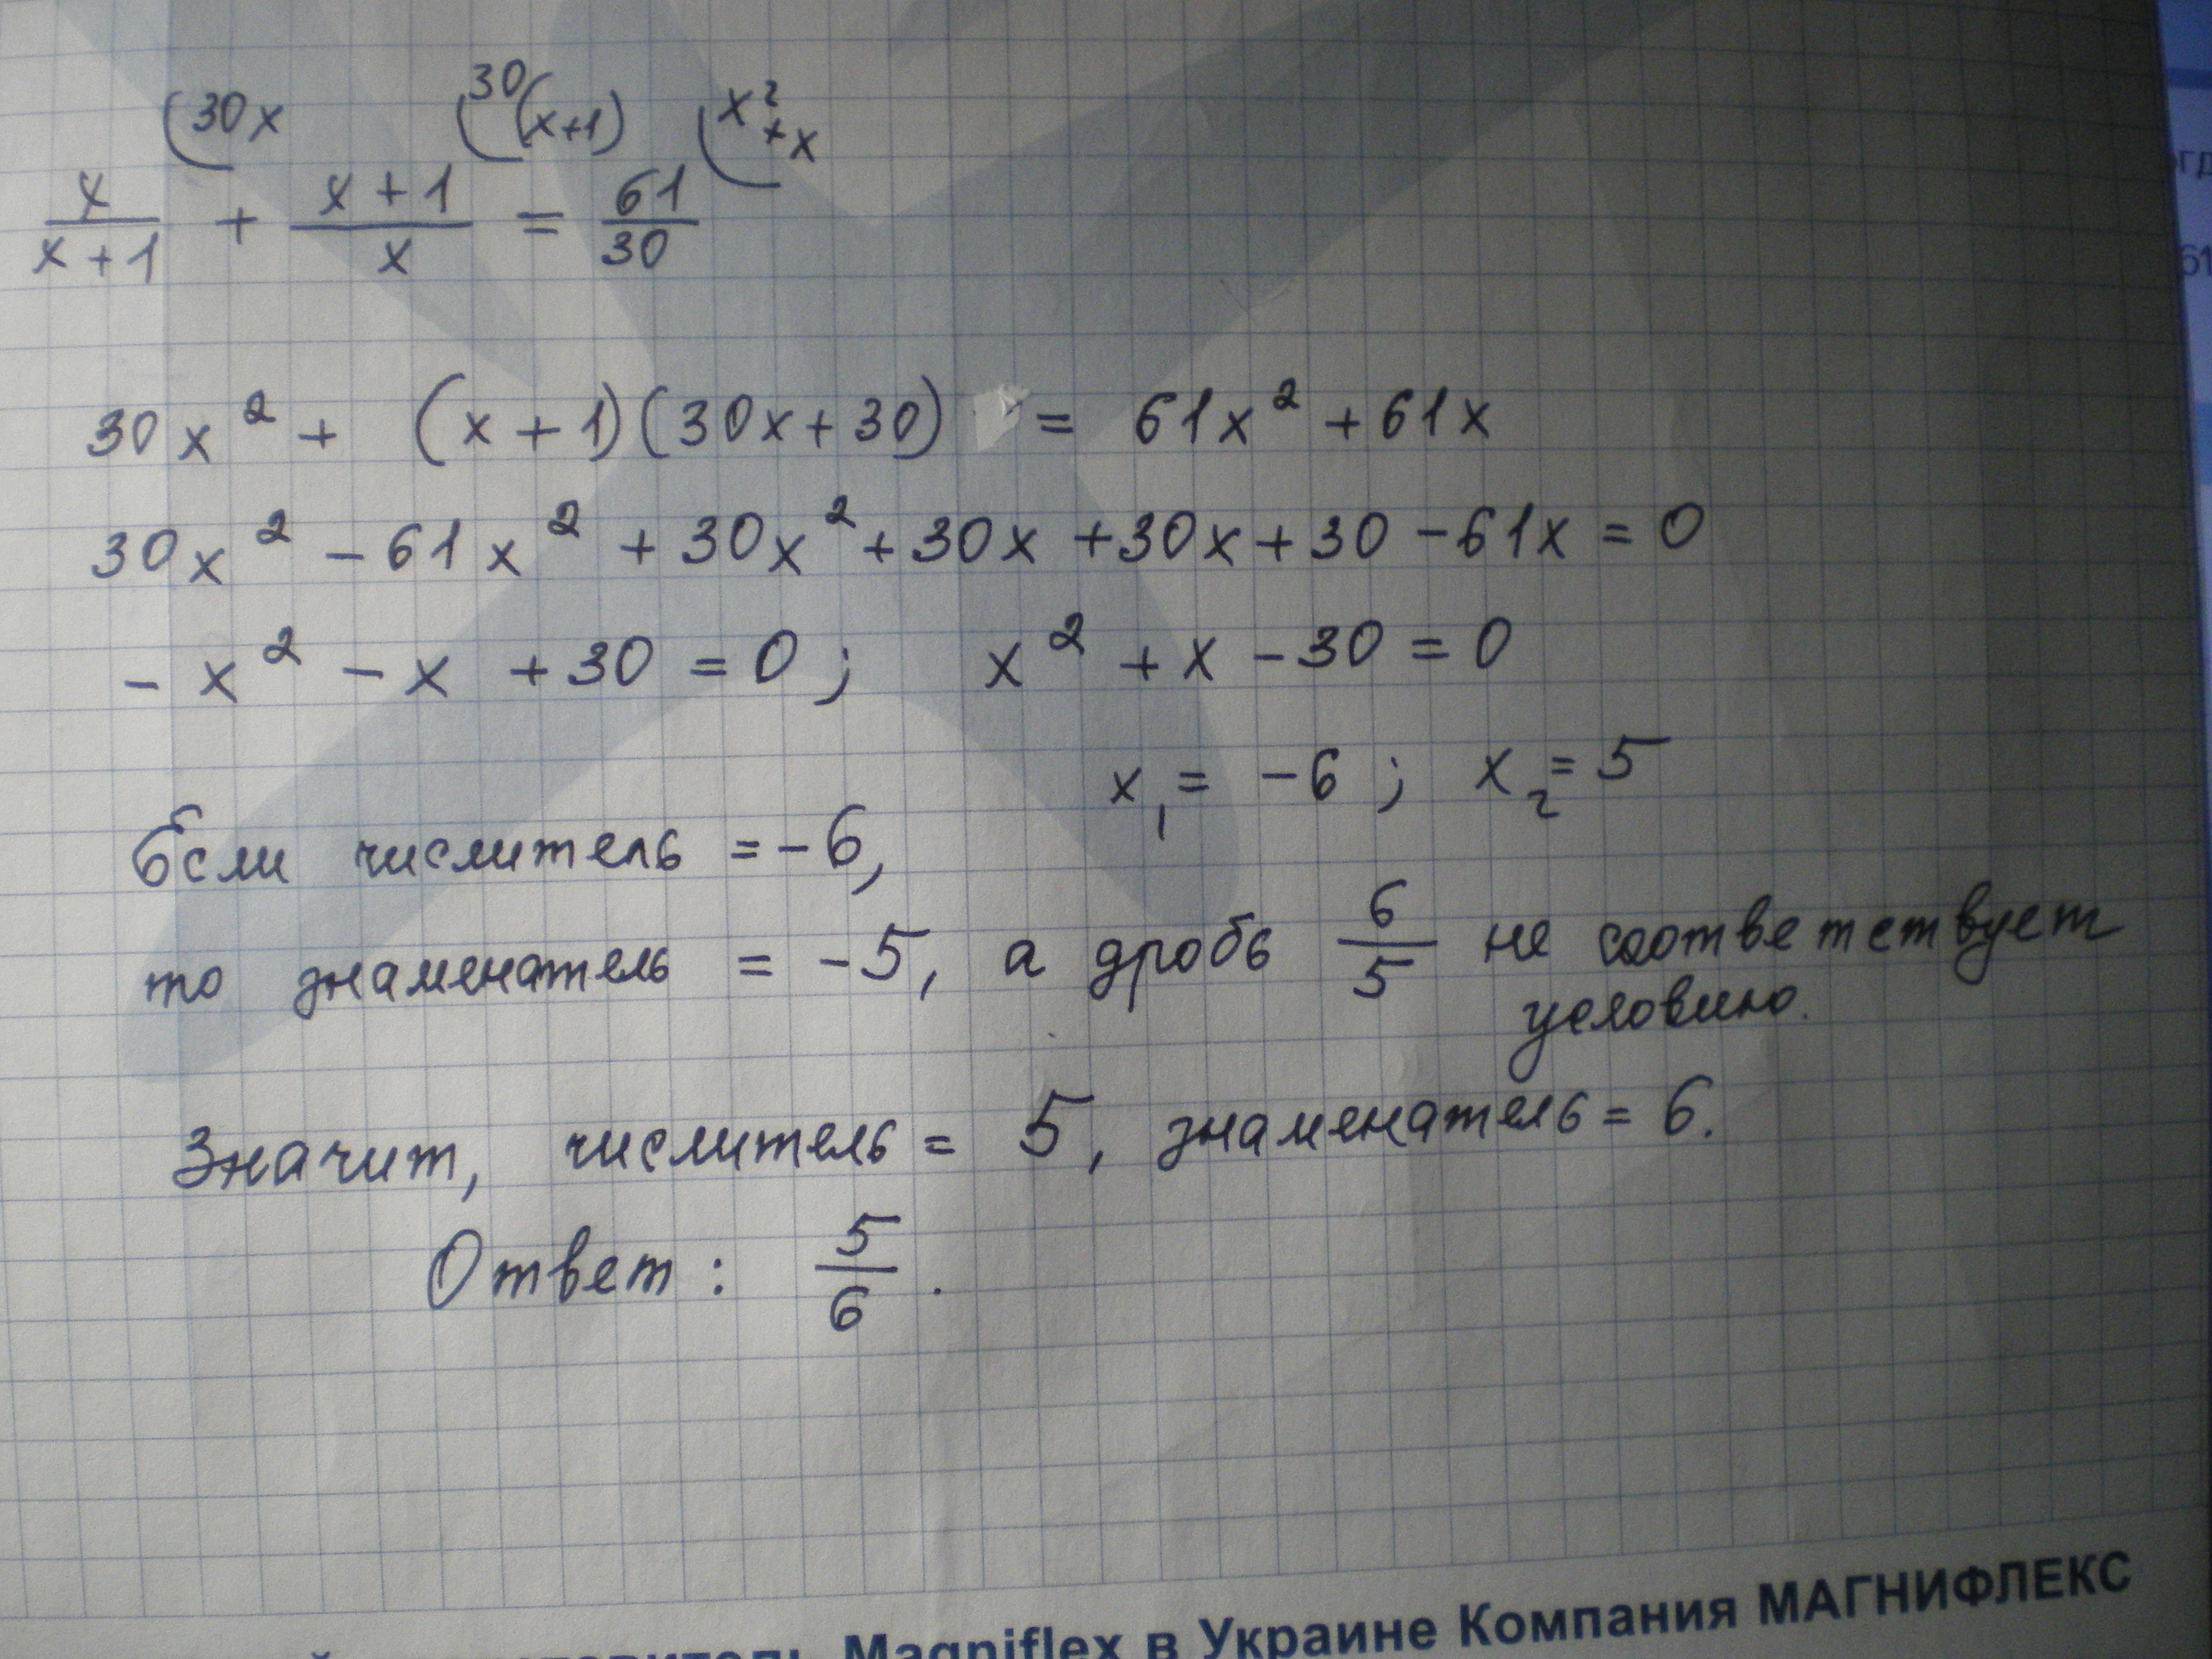 30x 30(x+1) x²+x
x/(x+1) + (x+1)/x = 61/30
30x² + (x+1)(30x+30) = 61x² + 61x
30x² - 61x² + 30x² + 30x + 30x + 30 - 61x = 0
- x² - x + 30 = 0; x² + x - 30 = 0
x₁ = -6; x₂ = 5
Если числитель = -6,
то знаменатель = -5, а дробь 6/5 не соответствует
условию.
Значит, числитель = 5, знаменатель = 6.
Ответ: 5/6.
Magniflex в Украине Компания МАГНИФЛЕКС
61